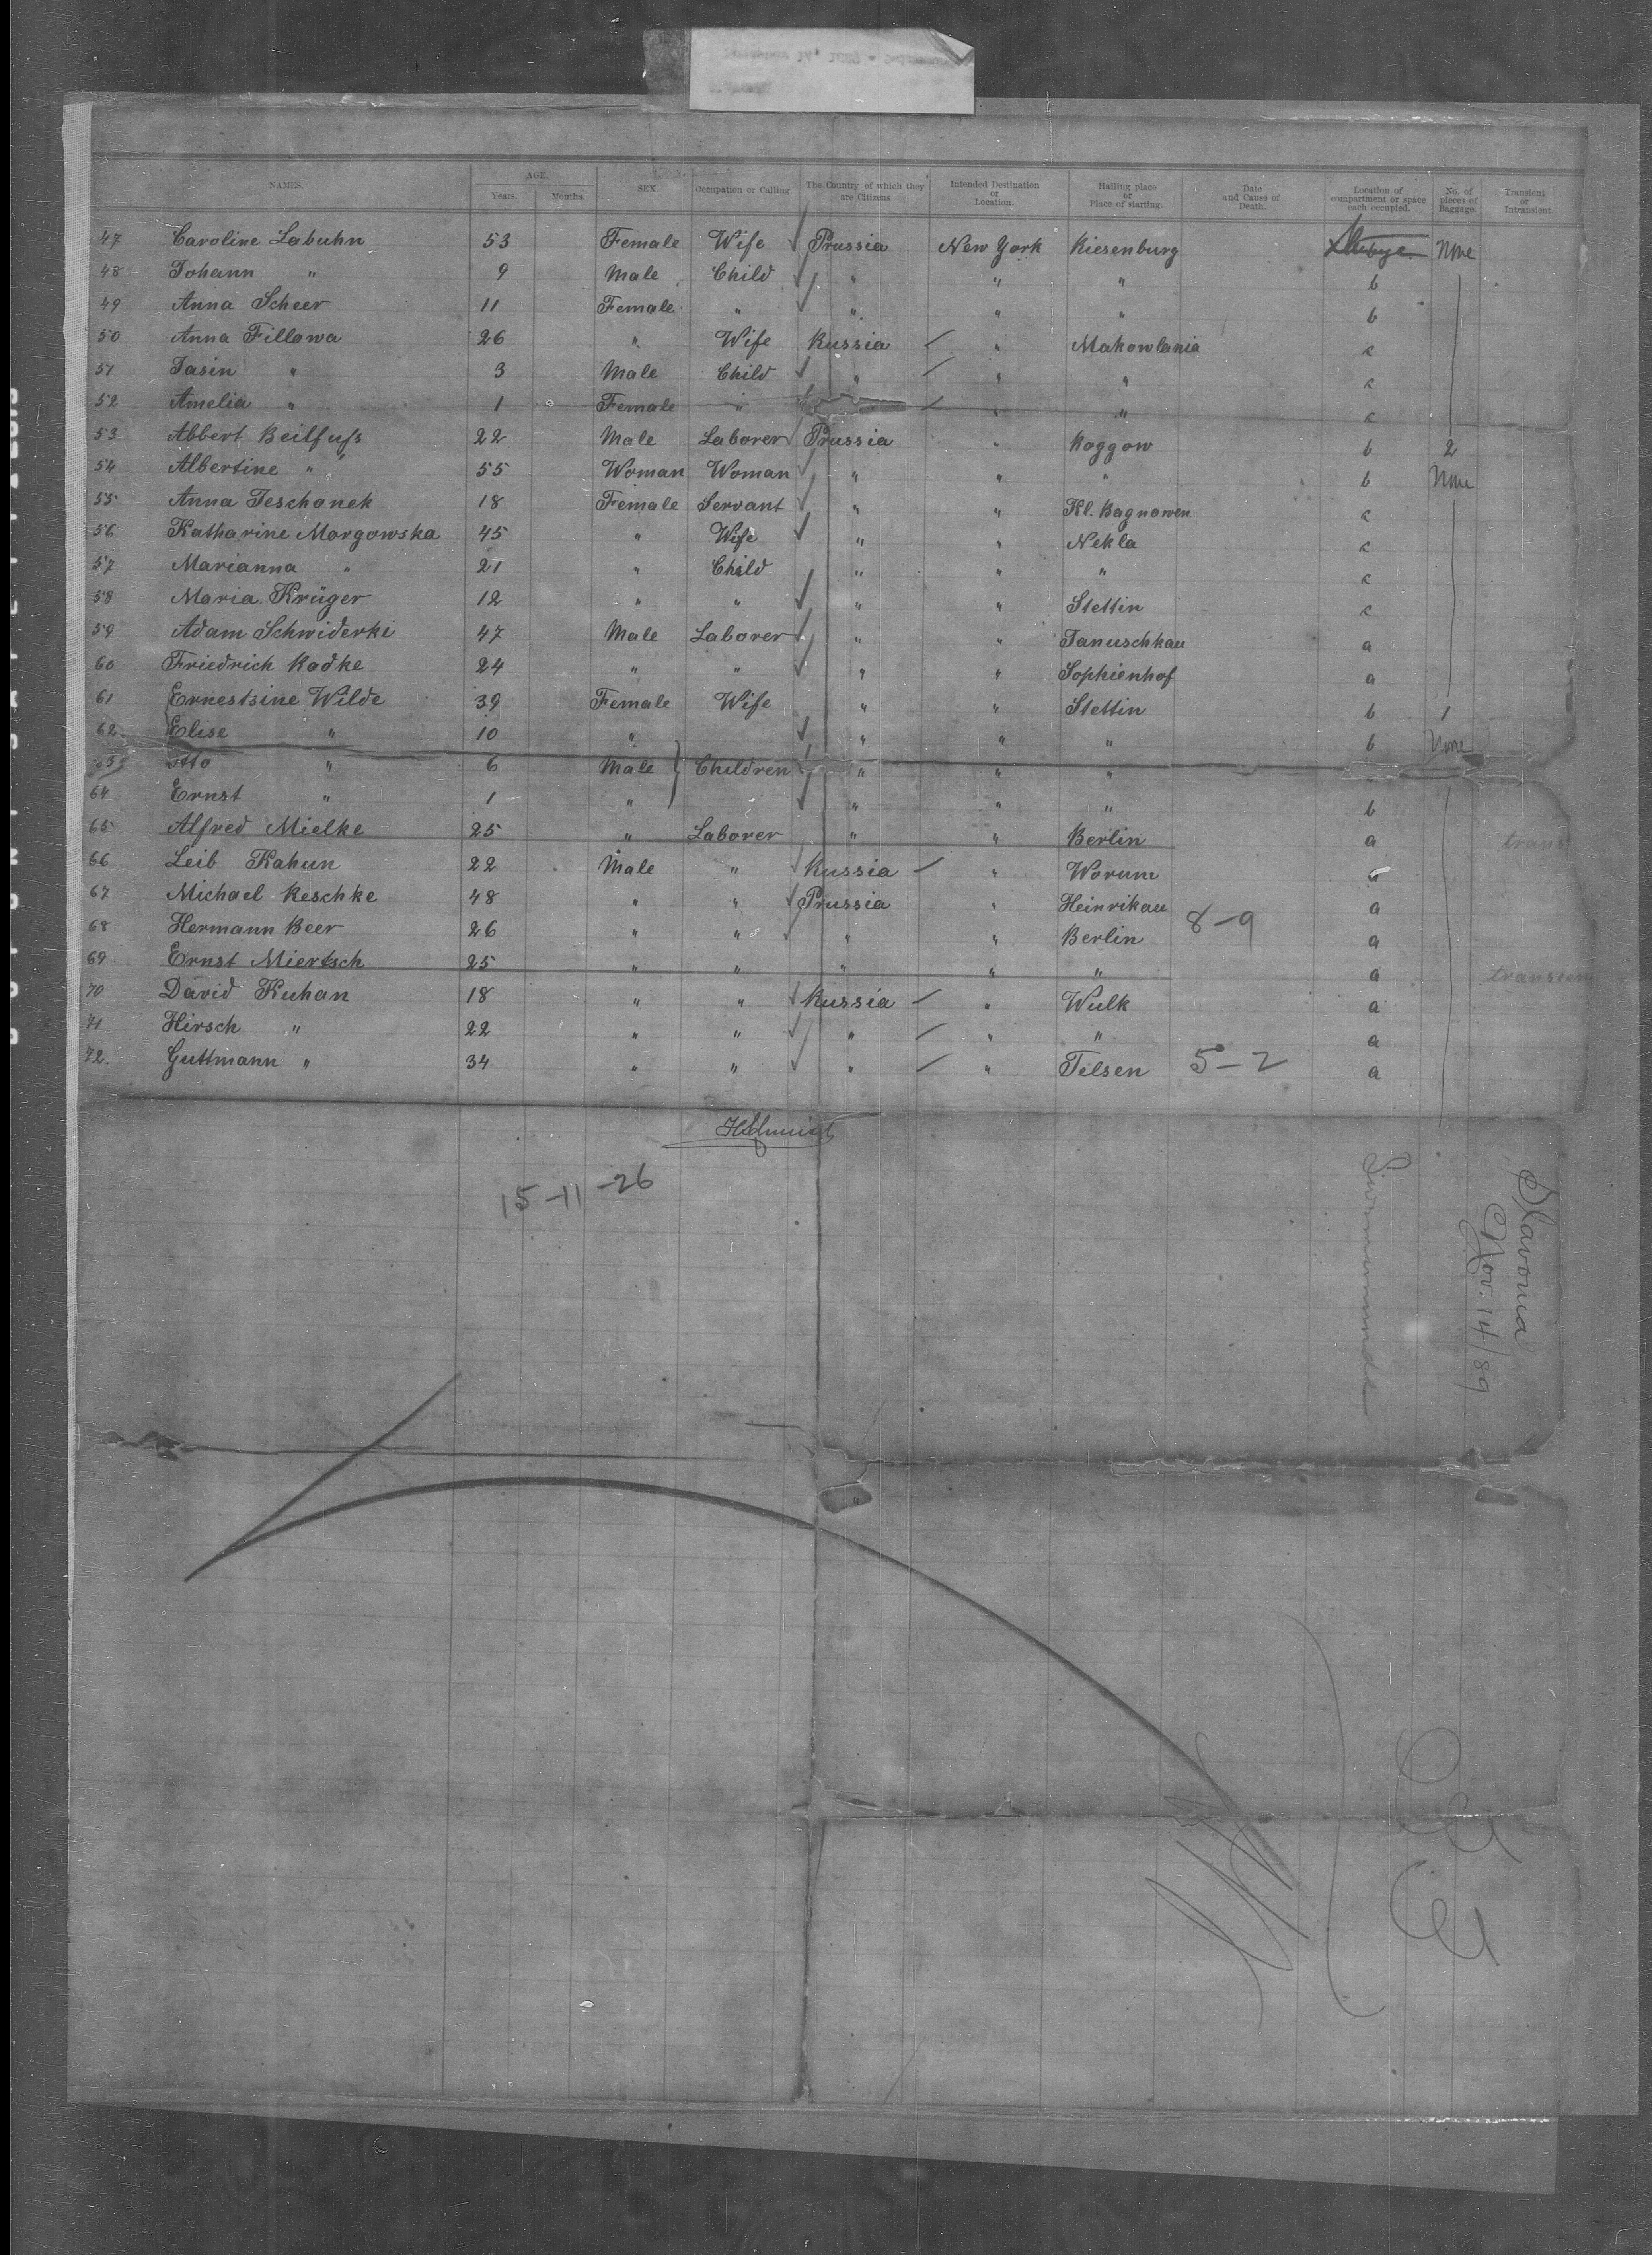 NAMES. AGE. Years. Months. SEX. Occupation or Calling. The Country of which they are Citizens Intended Destination or Location. Hailing place or Place of starting. Date and Cause of Death. Location of compartment or space each occupied. No. of pieces of Baggage. Transient or Intransient.
47 Caroline Labuhn 53 Female Wife Prussia New York Riesenburg None
48 Johann " 9 Male Child " " " b
49 Anna Scheer 11 Female " " " " b
50 Anna Fillowa 26 " Wife Russia " Makowlania c
51 Jasin " 3 Male Child " " " c
52 Amelia " 1 Female " " " c
53 Abbert Beilfuſs 22 Male Laborer Prussia " Roggow b 2
54 Albertine " 55 Woman Woman " " " b None
55 Anna Teschanek 18 Female Servant " " Kl. Bagnowen c
56 Katharine Morgowska 45 " Wife " " Nekla c
57 Marianna " 21 " Child " " " c
58 Maria Krüger 12 " " " " Stettin c
59 Adam Schwiderki 47 Male Laborer " " Januschkau a
60 Friedrich Radke 24 " " " " Sophienhof a
61 Ernestsine Wilde 39 Female Wife " " Stettin b 1
62 Elise " 10 " " " " b None
63 Otto " 6 Male Children " " "
64 Ernst " 1 " " " " b
65 Alfred Mielke 25 " Laborer " " Berlin a trans
66 Leib Kahun 22 Male " Russia " Worum a
67 Michael Reschke 48 " " Prussia " Heinrikau a
68 Hermann Beer 26 " " " " Berlin 8-9 a
69 Ernst Miertsch 25 " " " " " a transien
70 David Kuhan 18 " " Russia " Wulk a
71 Hirsch " 22 " " " " " a
72. Guttmann " 34 " " " " Telsen 5-2 a
HSchmidt
15-11-26
Slavonia
Nov. 14/89
Swinemunde